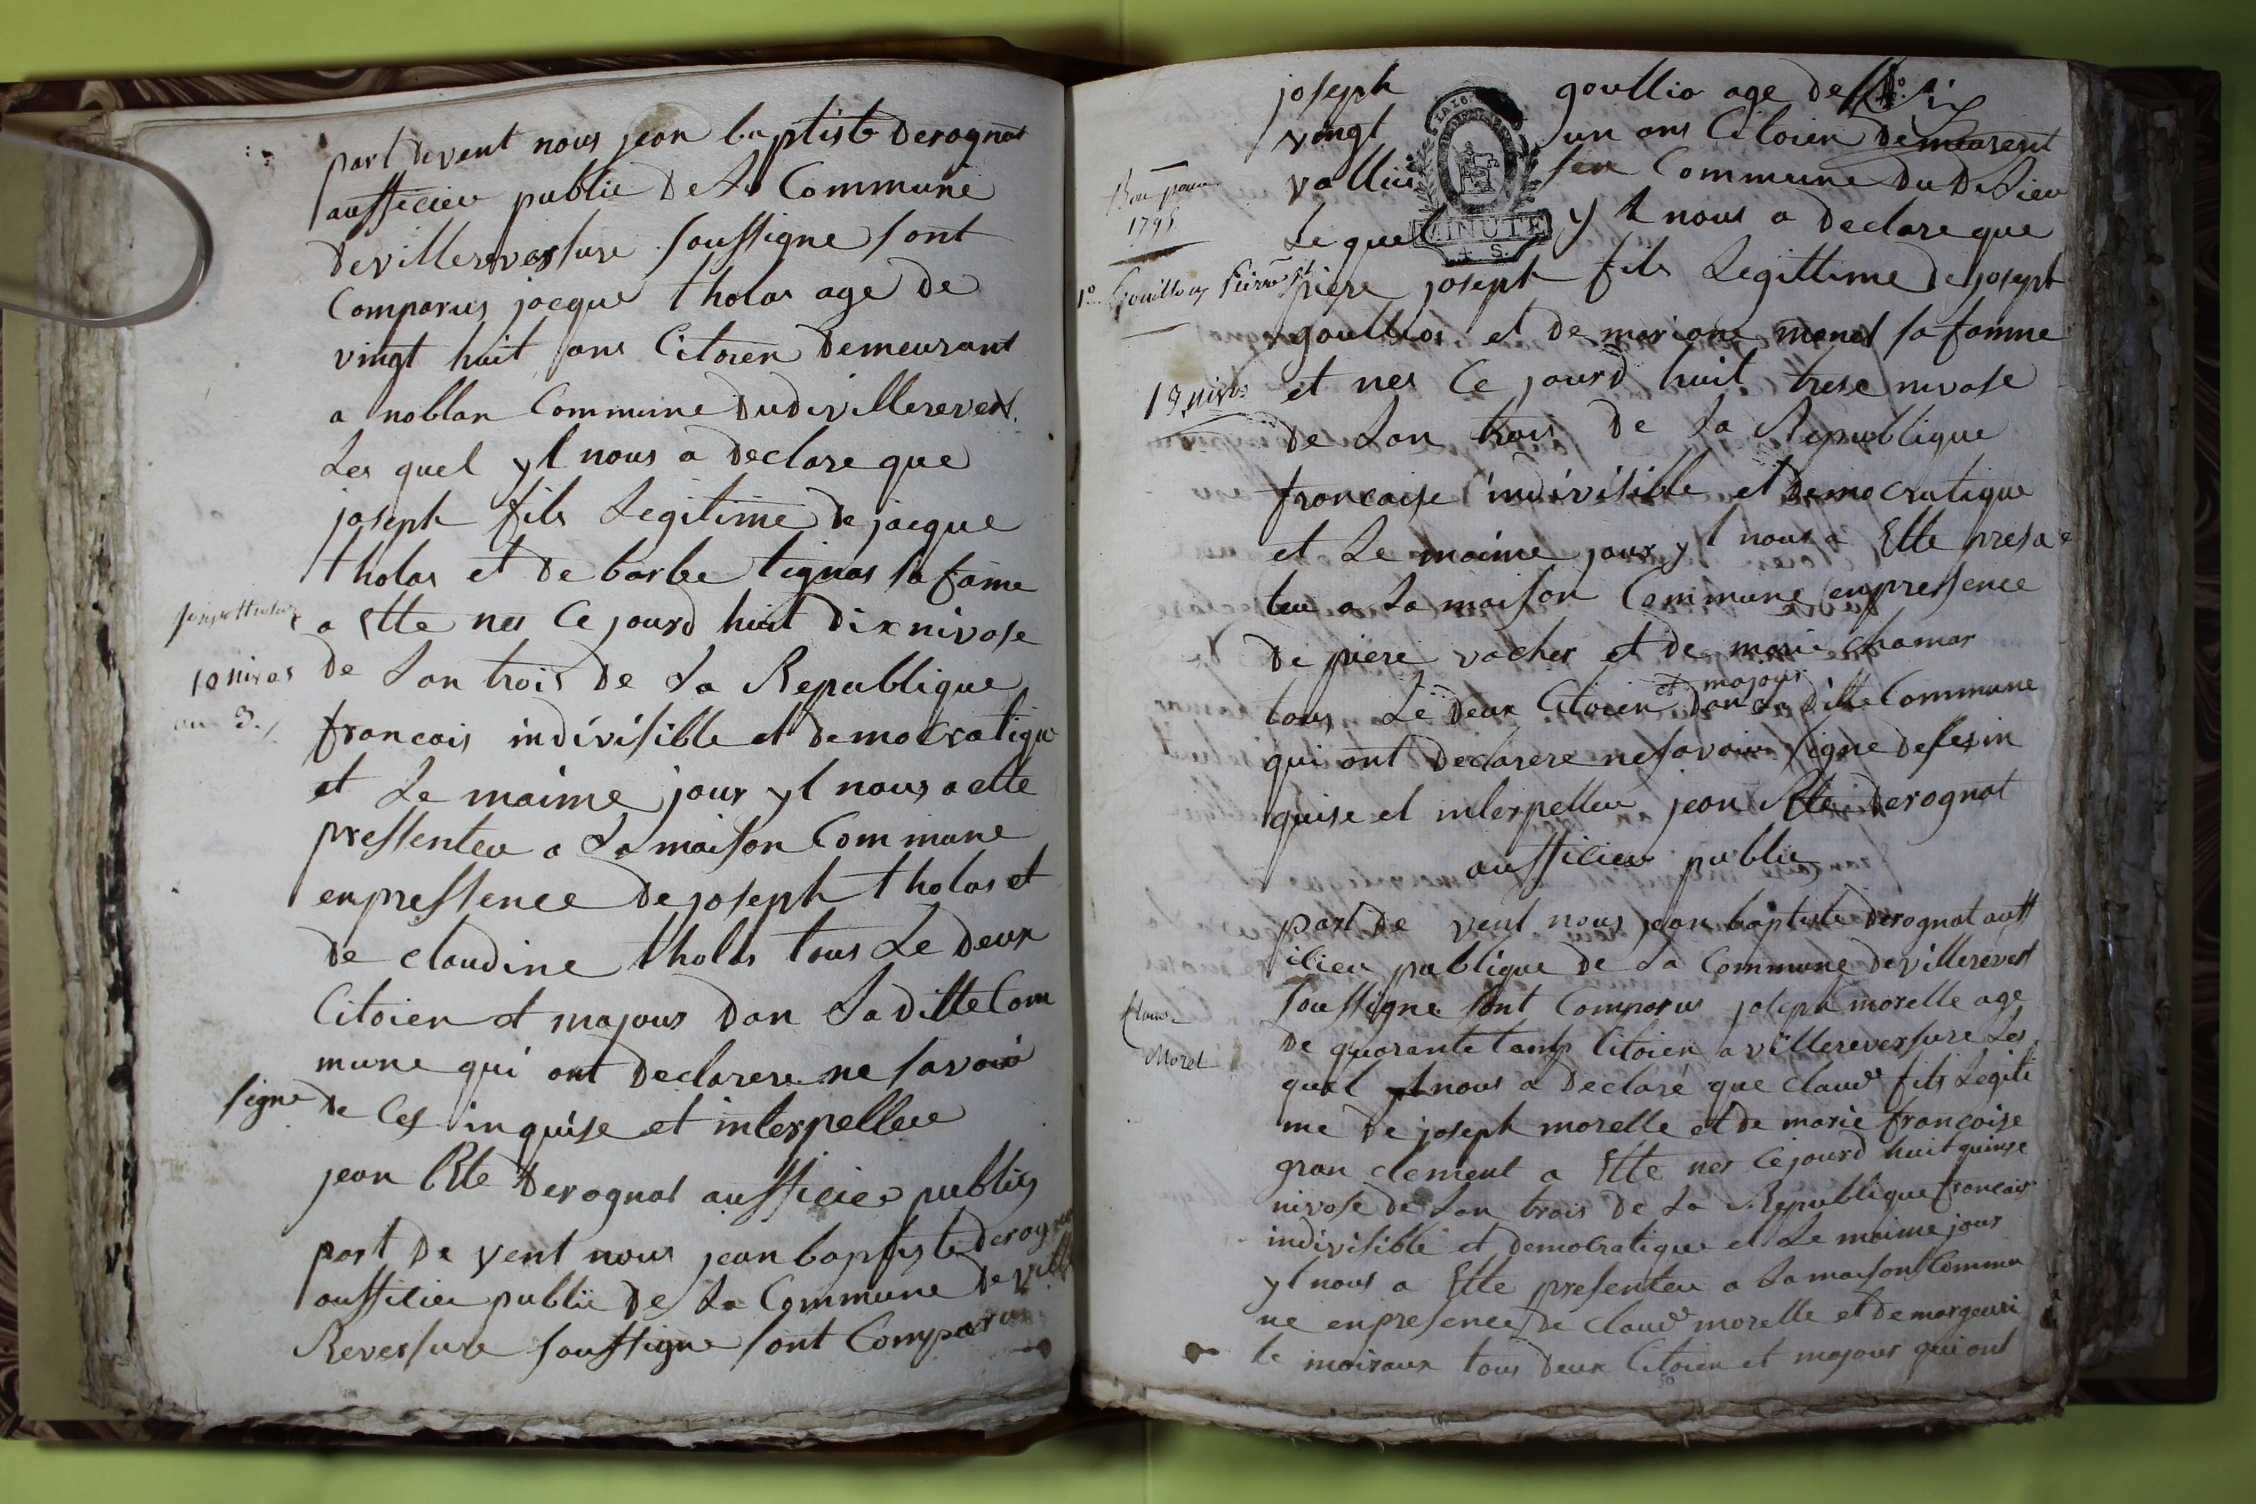 part devent nous jean baptiste derognat
aufficier public de La Commune
devillereversure soussigne sont
Comparus jacque tholas age de
vingt huit ans Citoien demeurant
a noblan Commune dudivillerevers.
Les quel yl nous a declare que
joseph fils Legitime de jacque
tholas et de barbe tignas sa fame
a Ette nes Ce jourd huit dix nivose
10 nivos
de Lan trois de La Republique
an 3.
francois indivisible et democratique
et Le maime jour yl nous a ette
pressenteu a La maison Commune
enpressence de joseph tholas et
de claudine tholas tous Le deux
Citoien et majous dan La ditte Com
mune qui ont declarere ne savoir
signe de Ces inquise et interpelleu
jean Bte derognat aufficier public
part de vent nous jean baptiste derognat
aufficier public de La Commune de ville
Reversure soussigne sont Comparus
joseph goullio age de
vingt un ans Citoien demeurent
Bon pour
1795
Commune du De Lieu
MINUTE
Le quel yl nous a declare que
1o Gouillon Pierre
piere joseph fils Legittime de joseph
goullios et de marione monel sa famme
13 nivos
et nes Ce jourd huit trese nivose
de Lan trois de La Republique
francaise indivisible et democratique
et Le maime jour yl nous a Ette presa
teu a La maison Commune enpressence
de piere vacher et de marie chamar
et majour
tous Le deux Citoien dan La ditte Commune
qui ont declarere nesavoir signe desesin
quise et interpelleu jean Bte derognat
aufficier public
part de vent nous jean baptiste derognat auff
icieu publique de La Commune devillerevest
soussigne sont Comparus joseph morelle age
Claude
Morel
de quarante Citoien a villereversure Les
quel yl nous a declaré que claude fils Legiti
me de joseph morelle et de marie francoise
gran clement a Ette nes Ce jourd huit quinse
nivose de Lan trois de La Republique francais
indivisible et democratique et Le maime jour
yl nous a Ette presenteu a La maison Commu
ne enpresence de claude morelle et de margeuri
te moiraux tous deux Citoien et majour qui ont